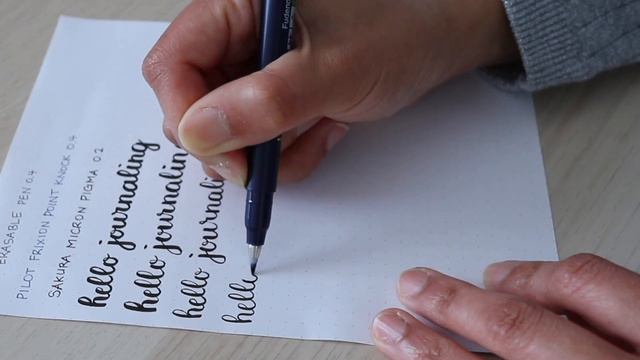 ERASABLE PEN 0.4
PILOT FRIXION POINT KNOCK 0.4
SAKURA MICRON PIGMA 0.2
hello journaling
hello journalin
hello journali
hello
Fudenos